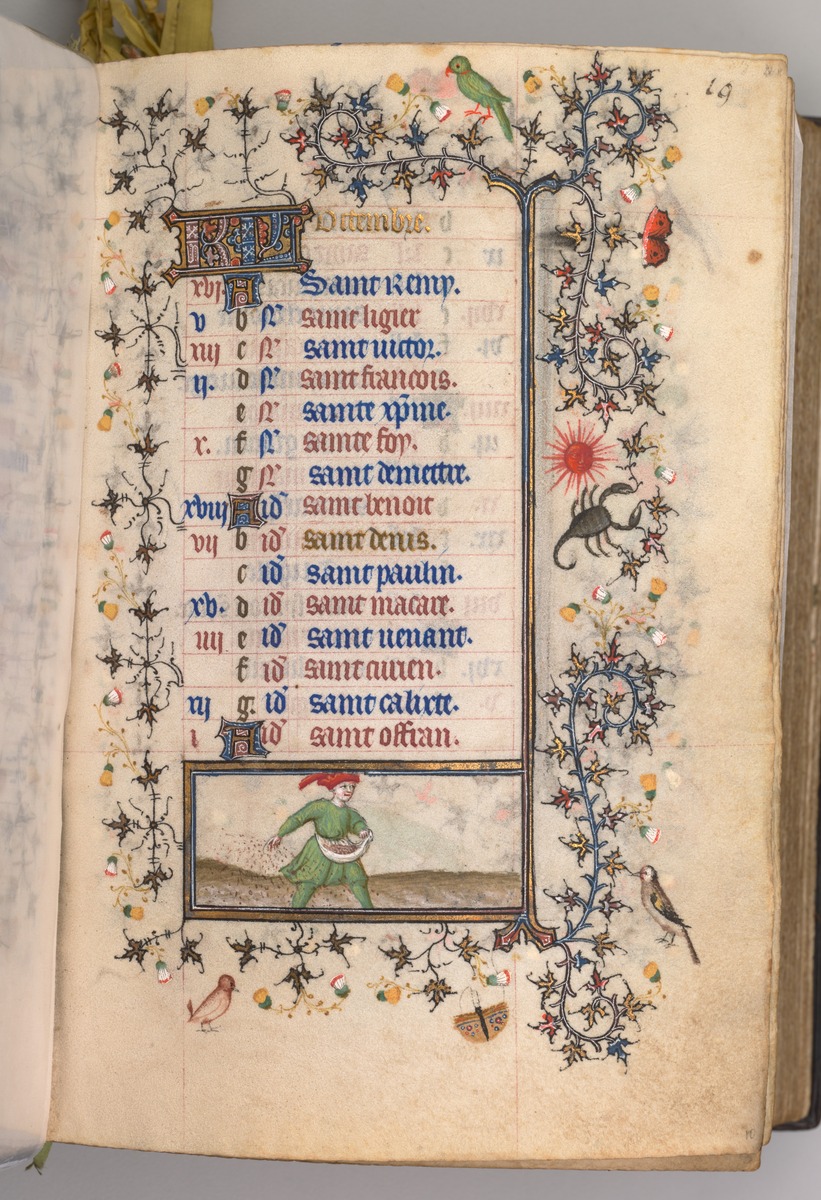 19
KL Octembre.
xvi A Saint Remy.
v b N saint ligier
xiii c N saint victor.
ii. d N saint francois.
e N sainte xpine.
x. f N sainte foy.
g N saint demettre.
xviii A id saint benoit
vii b id saint denis.
c id saint paulin.
xv. d id saint macare.
iiii e id saint venant.
f id saint curien.
xii g. id saint calixte.
i A id saint offran.